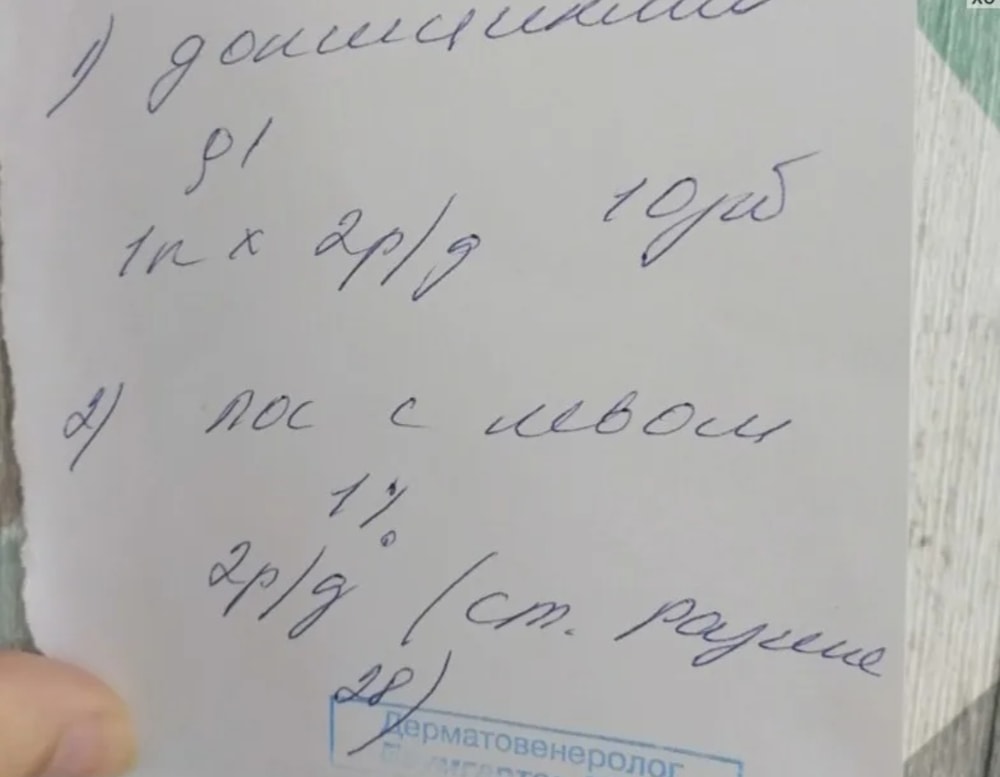 1) доксициклин
0,1
1т х 2р/д 10дней
2) лос с левом
1%
2р/д (ст. Разине
28)
Дерматовенеролог